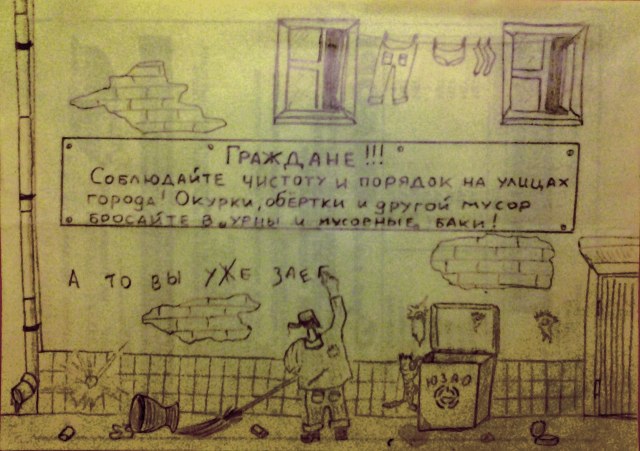 ГРАЖДАНЕ!!!
СОБЛЮДАЙТЕ ЧИСТОТУ И ПОРЯДОК НА УЛИЦАХ
ГОРОДА! ОКУРКИ, ОБЁРТКИ И ДРУГОЙ МУСОР
БРОСАЙТЕ В УРНЫ И МУСОРНЫЕ БАКИ!
А ТО ВЫ УЖЕ ЗАЕБ
ЮЗАО